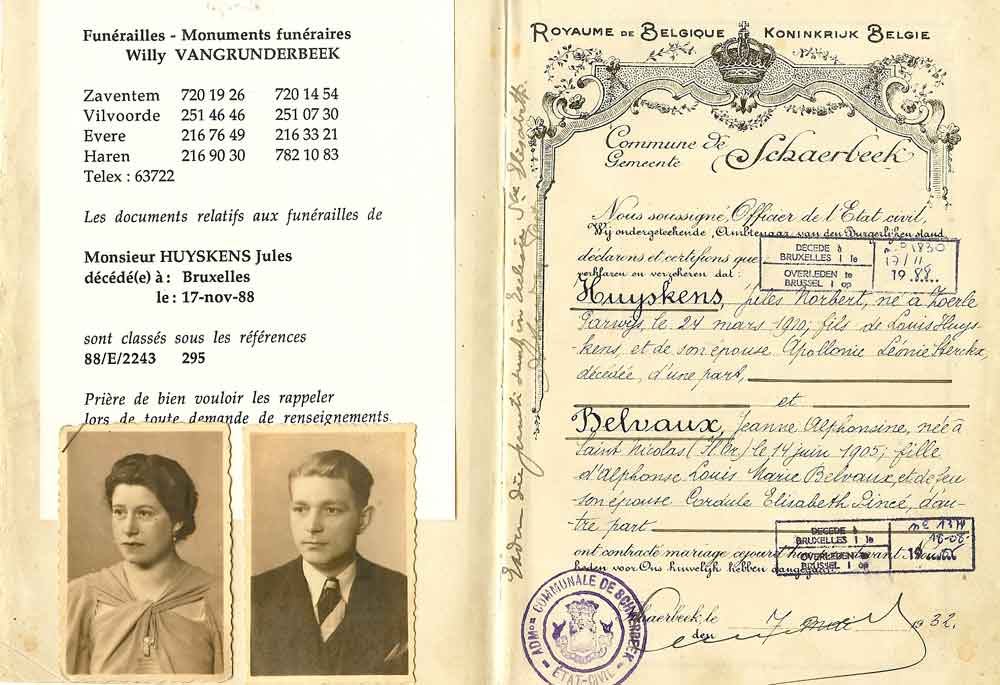 Funérailles - Monuments funéraires
Willy VANGRUNDERBEEK
Zaventem 720 19 26 720 14 54
Vilvoorde 251 46 46 251 07 30
Evere 216 76 49 216 33 21
Haren 216 90 30 782 10 83
Telex : 63722
Les documents relatifs aux funérailles de
Monsieur HUYSKENS Jules
décédé(e) à : Bruxelles
le : 17-nov-88
sont classés sous les références
88/E/2243 295
Prière de bien vouloir les rappeler
lors de toute demande de renseignements.
ROYAUME DE BELGIQUE KONINKRIJK BELGIE
Commune de
Gemeente
Schaerbeek
Nous soussigné, Officier de l'Etat civil,
Wij ondergeteekende, Ambtenaar van den Burgerlijken stand,
déclarons et certifions que
verklaren en verzekeren dat :
DECEDE à
BRUXELLES 1 le
OVERLEDEN te
BRUSSEL 1 op
n° 1830
17/11
1988
Huyskens, Jules Norbert, né à Zoerle
Parwijs, le 24 mars 1910; fils de Louis Huys-
kens, et de son épouse Apollonie Léonie Sterckx,
décédée, d'une part,
et
Belvaux, Jeanne Alphonsine, née à
Saint Nicolas (H. Or.) le 14 juin 1905; fille
d'Alphonse Louis Marie Belvaux, et de feu
son épouse Cordule Elisabeth Lincé, d'au-
tre part
DECEDE à
BRUXELLES 1 le
OVERLEDEN te
BRUSSEL 1 op
19
ont contracté mariage ce jourd'hui devant Nous
heden voor Ons huwelijk hebben aangegaan.
Schaerbeek, le
den
7 mai 1932.
ADMon COMMUNALE DE SCHAERBEEK
ÉTAT-CIVIL